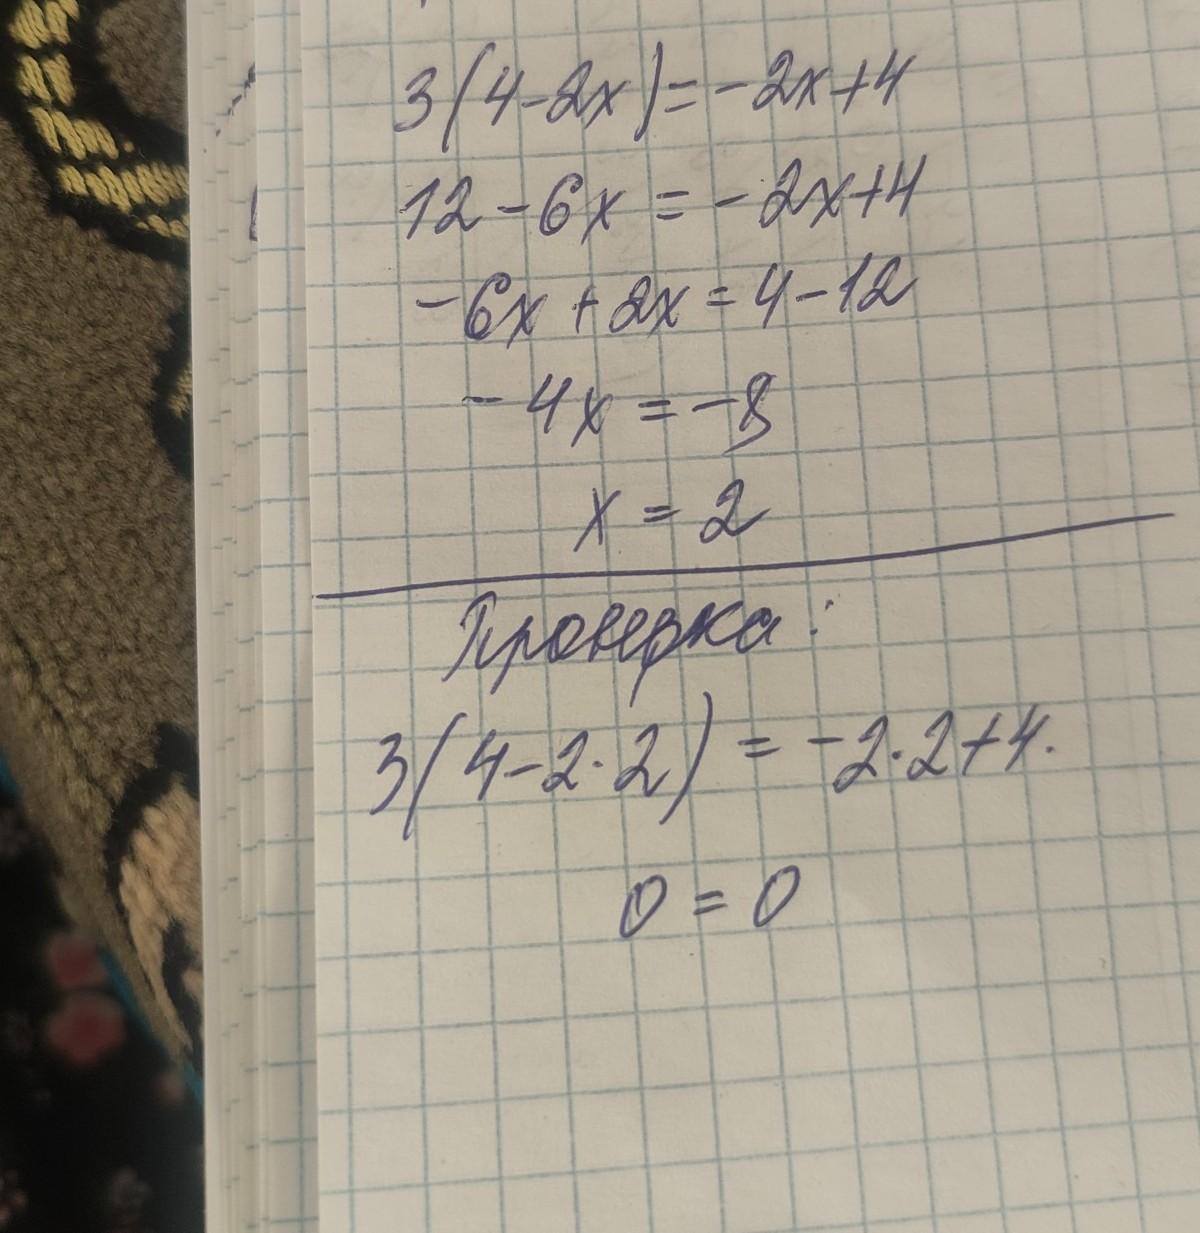 3(4-2x)=-2x+4
12-6x=-2x+4
-6x+2x=4-12
-4x=-8
x=2
Проверка:
3(4-2·2)=-2·2+4.
0=0